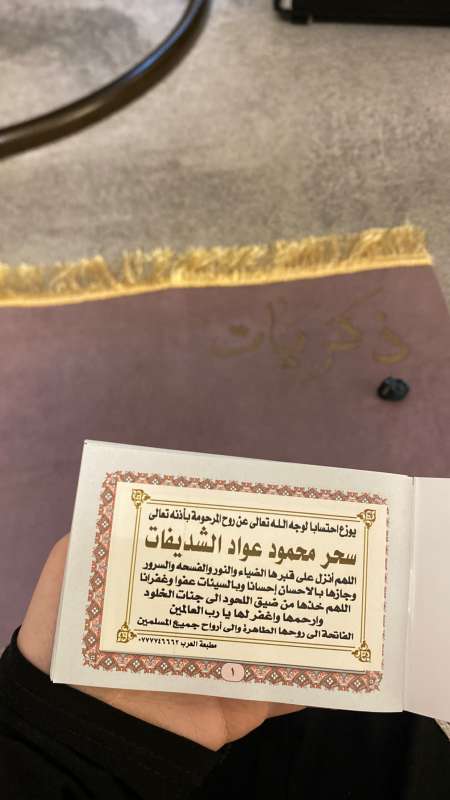 ذكريات
يوزع احتسابا لوجه الله تعالى عن روح المرحومة بأذنه تعالى
سحر محمود عواد الشديفات
اللهم أنزل على قبرها الضياء والنور والفسحه والسرور
وجازها بالاحسان إحسانا وبالسيئات عفوا وغفرانا
اللهم خذها من ضيق اللحود الى جنات الخلود
وارحمها واغفر لها يا رب العالمين
الفاتحة الى روحها الطاهرة والى أرواح جميع المسلمين
مطبعة العرب ٠٧٧٧٧٤٦٦٦٢
١